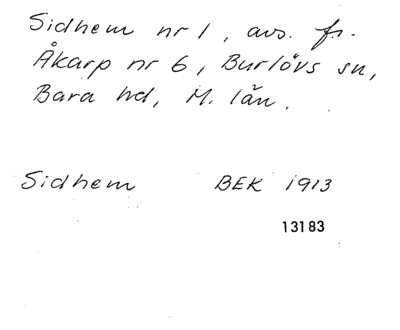 Sidhem nr 1, avs. fr.
Åkarp nr 6, Burlövs sn,
Bara hd, M. län.
Sidhem BEK 1913
13183